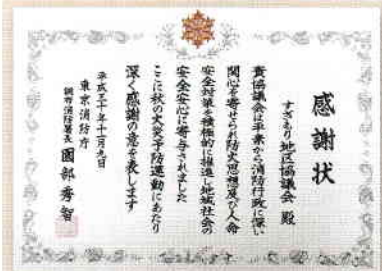 感謝状
すぎもり地区協議会 殿
貴協議会は平素から消防行政に深い
関心を寄せられ防火思想及び人命
安全対策を積極的に推進し地域社会の
安全安心に寄与されました
ここに秋の火災予防運動にあたり
深く感謝の意を表します
平成三十年十一月九日
東京消防庁
調布消防署長 園部秀智